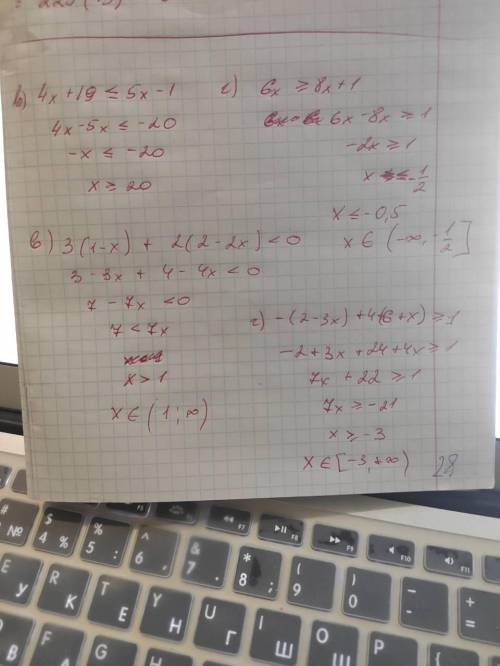 в) 4x + 19 ≤ 5x - 1
4x - 5x ≤ -20
-x ≤ -20
x ≥ 20
г) 6x ≥ 8x + 1
6x - 8x ≥ 1
-2x ≥ 1
x ≤ -1/2
x ≤ -0,5
x ∈ (-∞, -1/2]
в) 3(1-x) + 2(2-2x) < 0
3 - 3x + 4 - 4x < 0
7 - 7x < 0
7 < 7x
x > 1
x ∈ (1; ∞)
г) -(2-3x) + 4(6+x) ≥ 1
-2 + 3x + 24 + 4x ≥ 1
7x + 22 ≥ 1
7x ≥ -21
x ≥ -3
x ∈ [-3, +∞)
28
# №
$ 4 %
% 5 :
^ 6 ,
& 7 .
* 8 ;
( 9
) 0
- -
+ =
F7
F8
F9
F10
F11
E У
R К
T Е
Y Н
U Г
I Ш
O Щ
P З
D В
F А
G П
H Р
J О
K